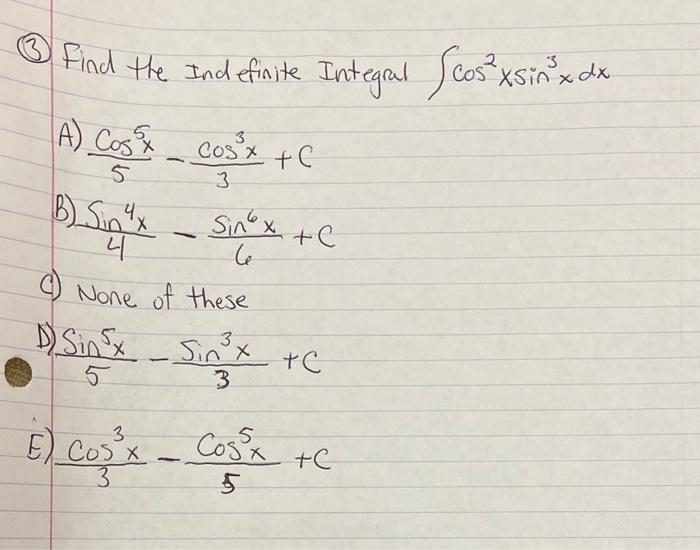 ③ Find the Indefinite Integral ∫cos²xsin³x dx
A) Cos⁵x/5 - cos³x/3 + C
B) Sin⁴x/4 - Sin⁶x/6 + C
C) None of these
D) Sin⁵x/5 - Sin³x/3 + C
E) Cos³x/3 - Cos⁵x/5 + C